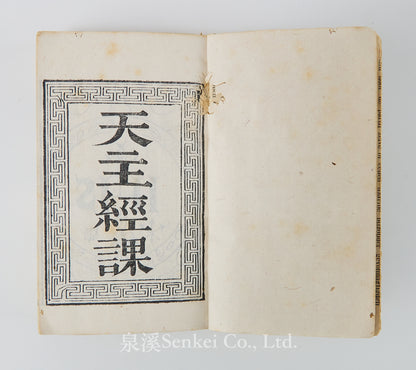 天主經課
泉溪Senkei Co., Ltd.